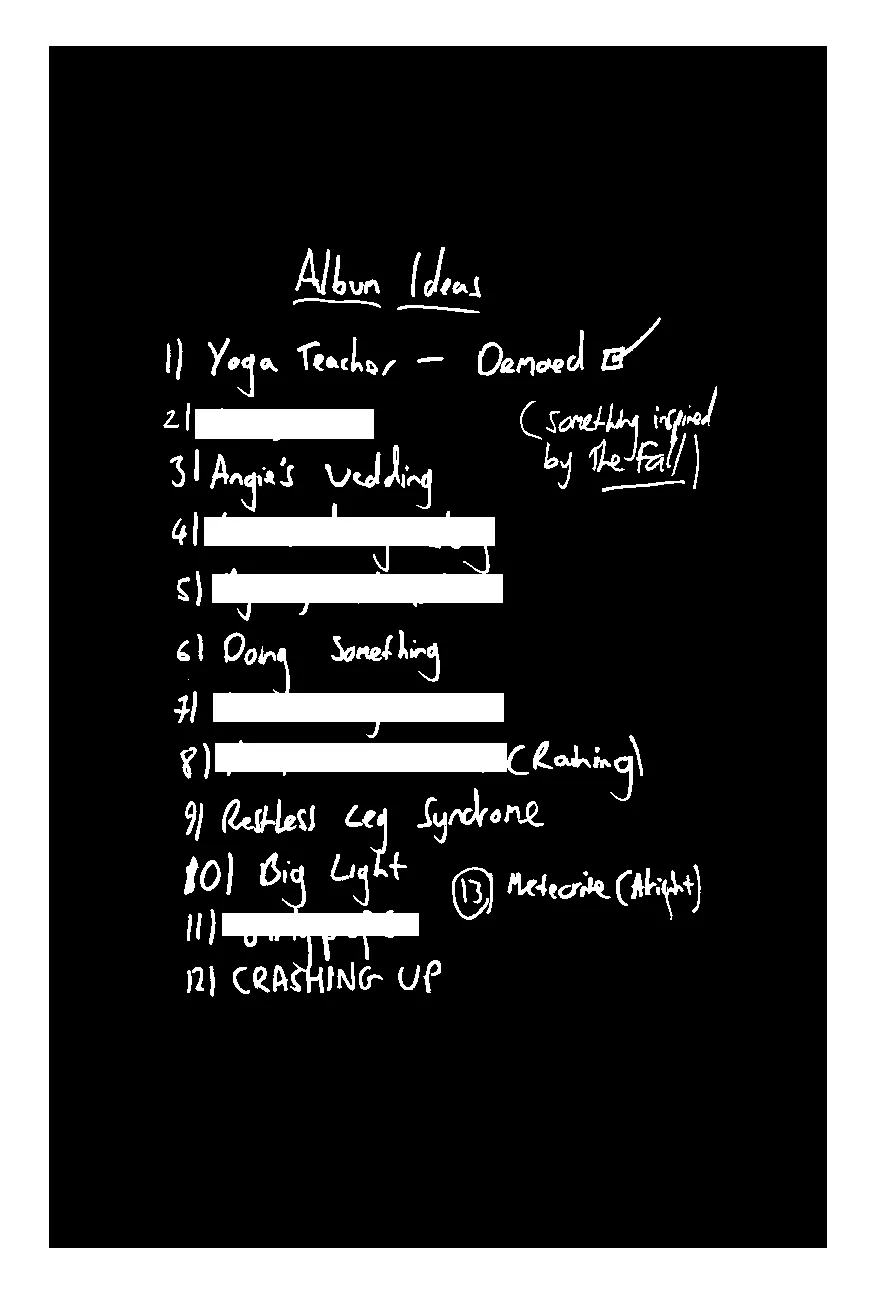 Album Ideas
1) Yoga Teacher - Demoed ☑
2)
(something inspired
by The Fall)
3) Angie's Wedding
4)
5)
6) Doing Something
7)
8) (Raining)
9) Restless Leg Syndrome
10) Big Light
13) Meteorite (Alright)
11)
12) CRASHING UP